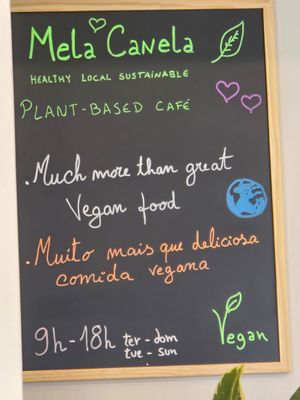 Mela Canela
HEALTHY LOCAL SUSTAINABLE
PLANT-BASED CAFÉ
. Much more than great
Vegan food
. Muito mais que deliciosa
comida vegana
9h-18h ter - dom
tue - sun
Vegan